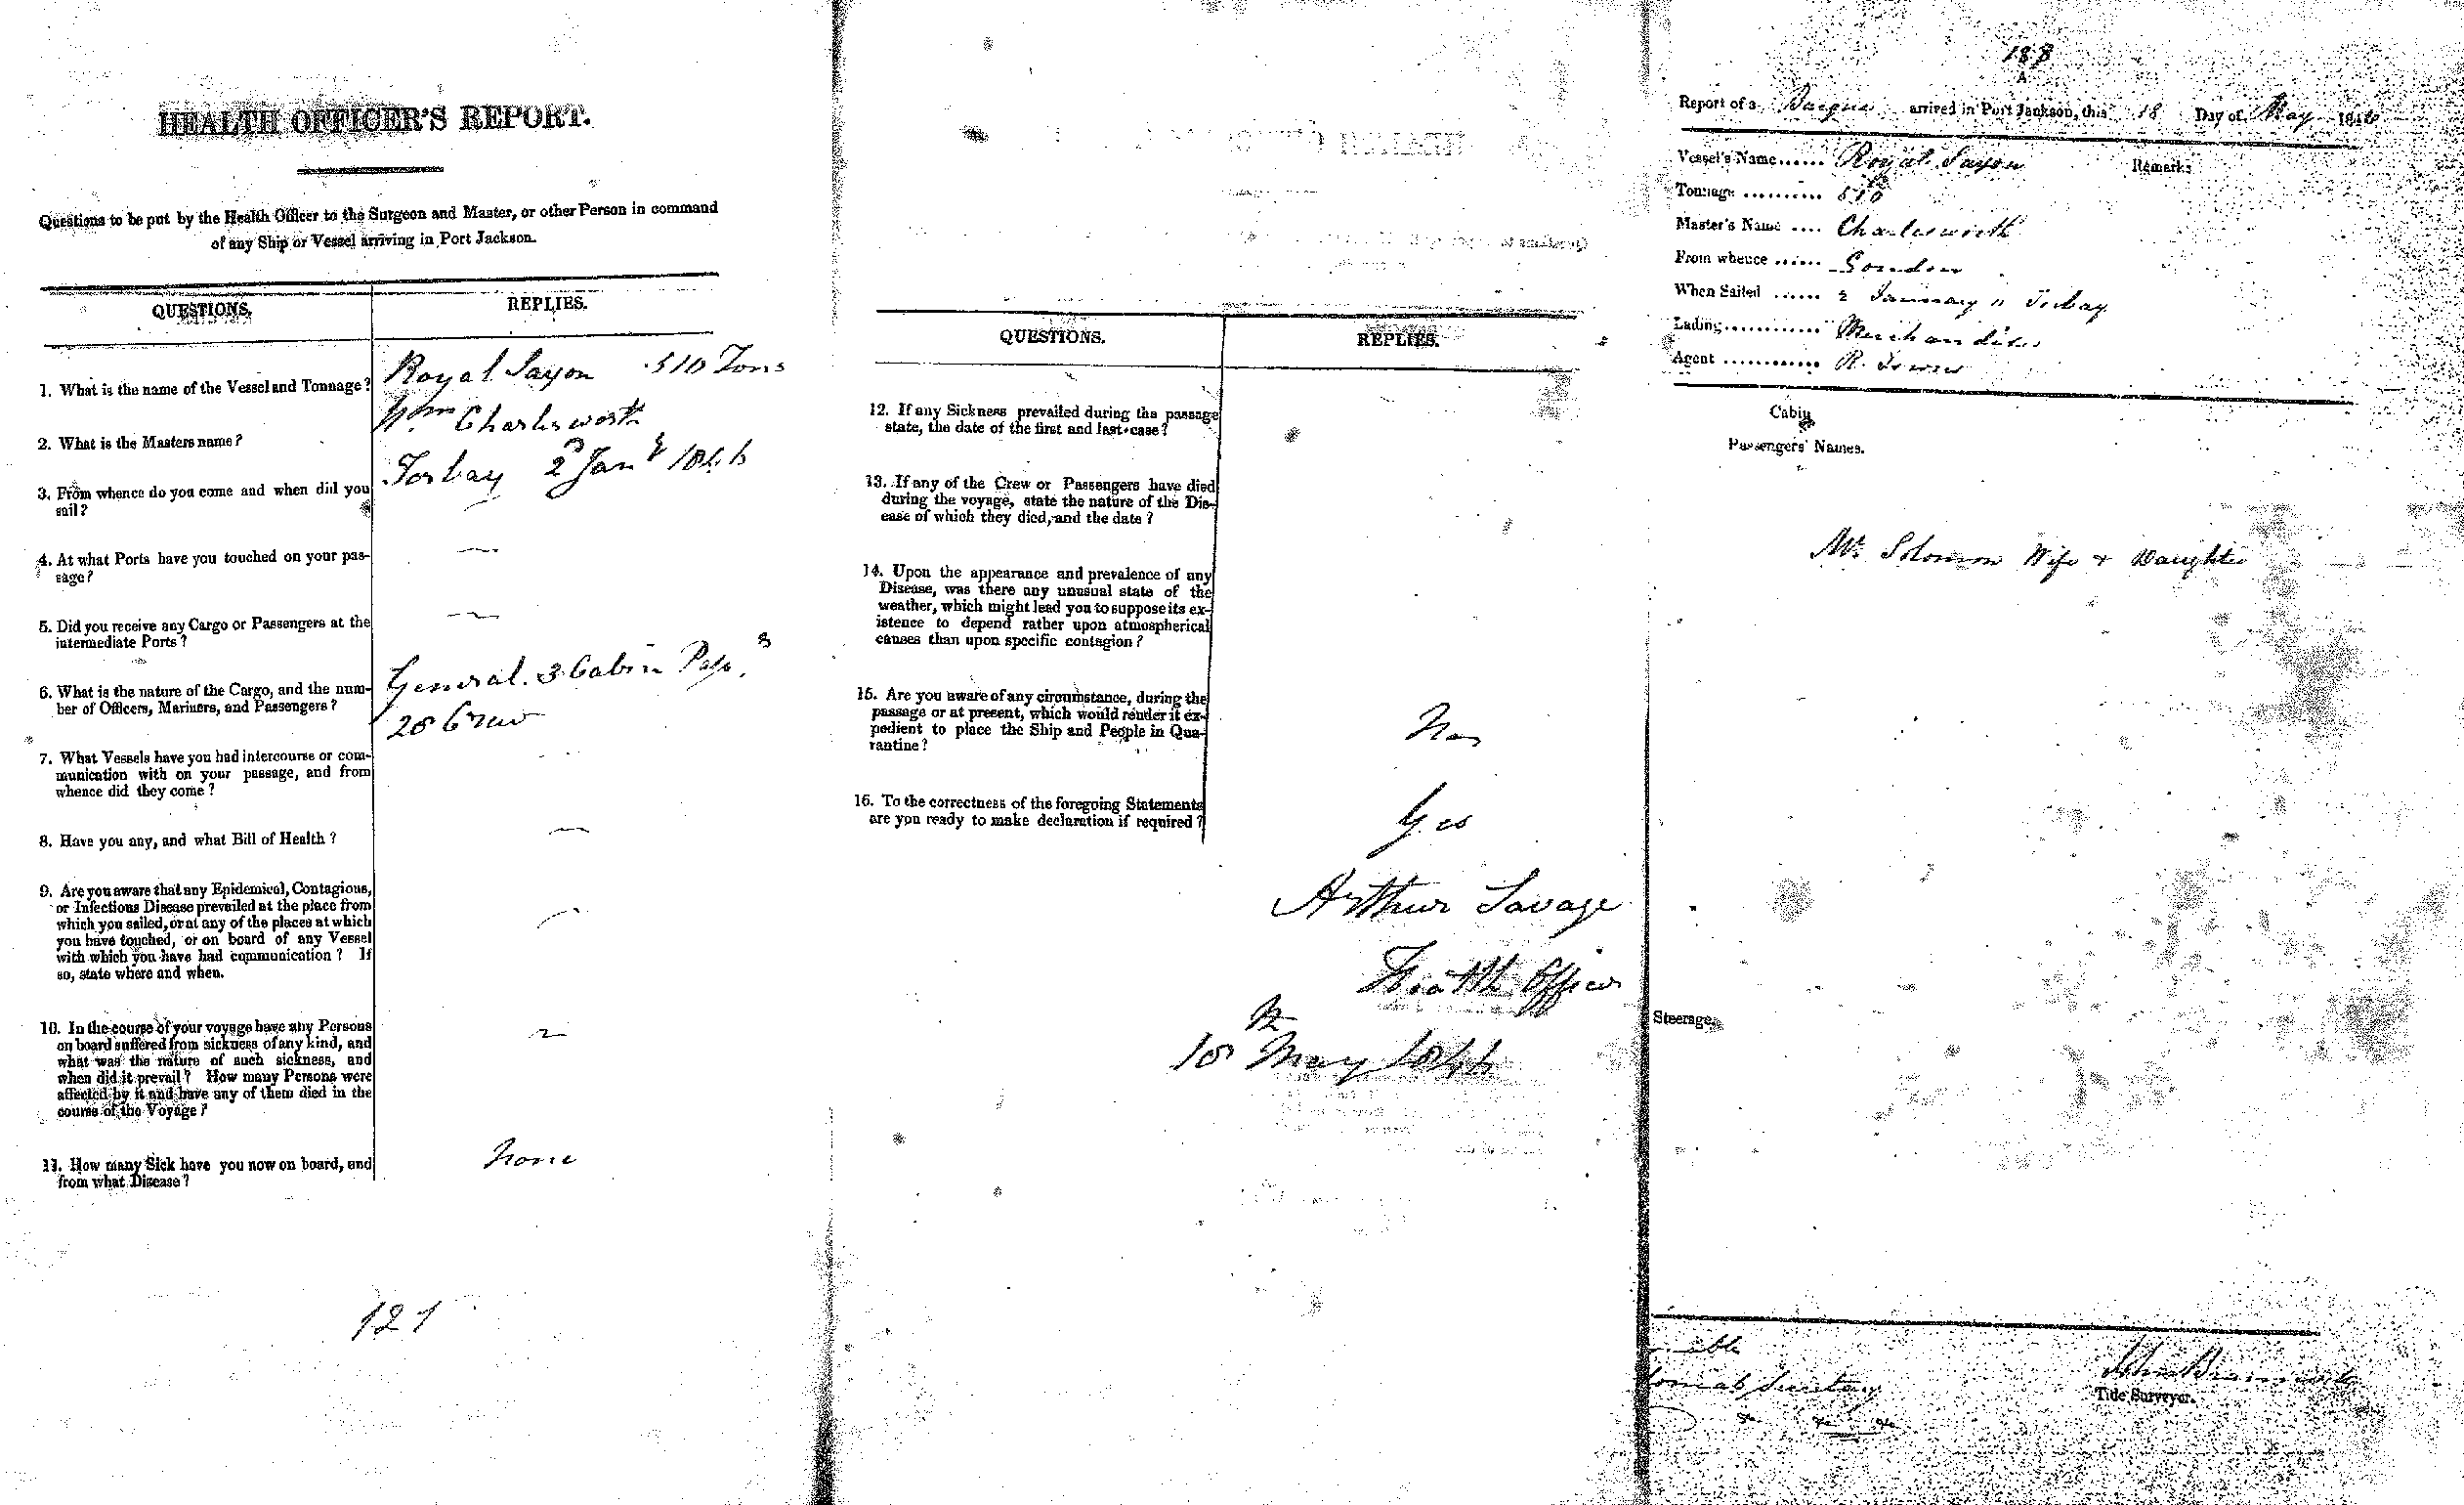 HEALTH OFFICER'S REPORT.
Questions to be put by the Health Officer to the Surgeon and Master, or other Person in command
of any Ship or Vessel arriving in Port Jackson.
QUESTIONS. REPLIES.
1. What is the name of the Vessel and Tonnage? Royal Saxon 510 Tons
2. What is the Masters name? Wm Charlesworth
3. From whence do you come and when did you Torbay 2d Jany 1846
sail?
4. At what Ports have you touched on your pas- —
sage?
5. Did you receive any Cargo or Passengers at the —
intermediate Ports?
6. What is the nature of the Cargo, and the num- General. 3 Cabin Pass.s
ber of Officers, Mariners, and Passengers? 28 Crew
7. What Vessels have you had intercourse or com-
munication with on your passage, and from
whence did they come?
8. Have you any, and what Bill of Health? —
9. Are you aware that any Epidemical, Contagious,
or Infectious Disease prevailed at the place from
which you sailed, or at any of the places at which —
you have touched, or on board of any Vessel
with which you have had communication? If
so, state where and when.
10. In the course of your voyage have any Persons
on board suffered from sickness of any kind, and —
what was the nature of such sickness, and
when did it prevail? How many Persons were
affected by it and have any of them died in the
course of the Voyage?
11. How many Sick have you now on board, and None
from what Disease?
121
QUESTIONS. REPLIES.
12. If any Sickness prevailed during the passage
state, the date of the first and last case?
13. If any of the Crew or Passengers have died
during the voyage, state the nature of the Dis-
ease of which they died, and the date?
14. Upon the appearance and prevalence of any
Disease, was there any unusual state of the
weather, which might lead you to suppose its ex-
istence to depend rather upon atmospherical
causes than upon specific contagion?
15. Are you aware of any circumstance, during the
passage or at present, which would render it ex-
pedient to place the Ship and People in Qua- No
rantine?
16. To the correctness of the foregoing Statements Yes
are you ready to make declaration if required?
Arthur Savage
Health Officer
18th May 1846
188
A.
Report of a Barque arrived in Port Jackson, this 18 Day of May 1846
Vessel's Name...... Royal Saxon Remarks
Tonnage .......... 510
Master's Name .... Charlesworth
From whence ...... London
When Sailed ...... 2 January " Torbay
Lading............ Merchandise
Agent ............ R. Towns
Cabin
Passengers' Names.
Mr. Solomon Wife & Daughter
Steerage.
Tide Surveyor.